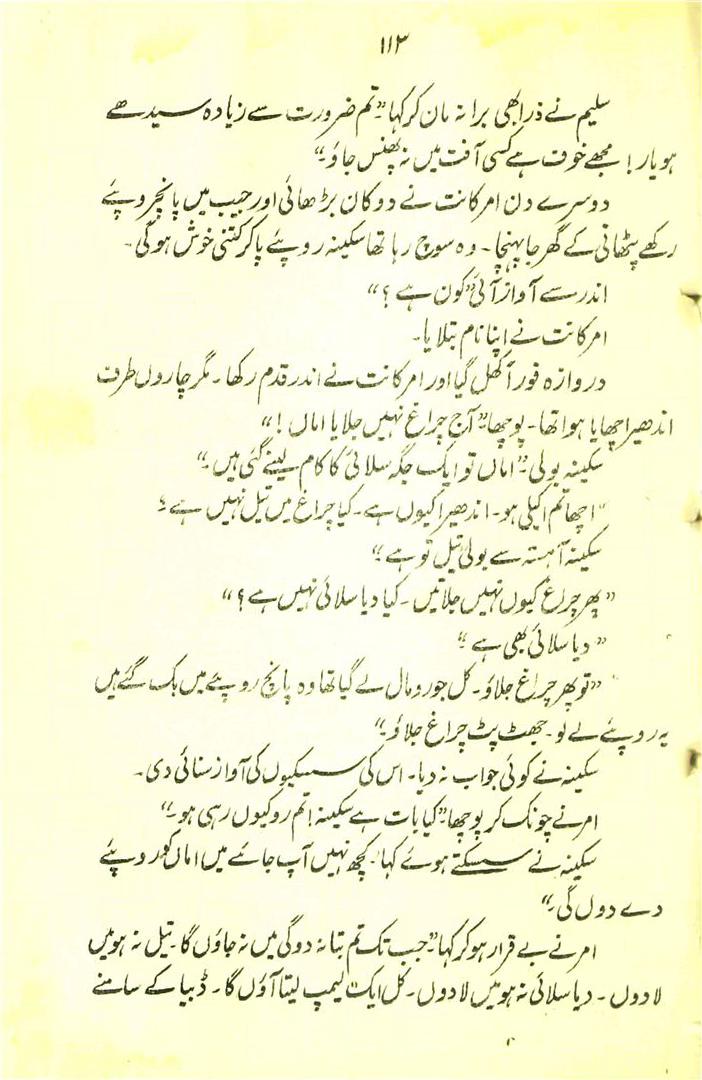 ۱۱۳
سلیم نے ذرا بھی برا نہ مان کر کہا "تم ضرورت سے زیادہ سیدھے
ہو یار! مجھے خوف ہے کسی آفت میں نہ پھنس جاؤ۔"
دوسرے دن امرکانت نے دوکان بڑھائی اور جیب میں پانچ روپئے
رکھے پٹھانی کے گھر جا پہنچا۔ وہ سوچ رہا تھا سکینہ روپئے پا کر کتنی خوش ہوگی۔
اندر سے آواز آئی "کون ہے؟"
امرکانت نے اپنا نام بتلایا۔
دروازہ فوراً کھل گیا اور امرکانت نے اندر قدم رکھا۔ مگر چاروں طرف
اندھیرا چھایا ہوا تھا۔ پوچھا "آج چراغ نہیں جلایا اماں!"
سکینہ بولی "اماں تو ایک جگہ سلائی کا کام لینے گئی ہیں۔"
"اچھا تم اکیلی ہو۔ اندھیرا کیوں ہے۔ کیا چراغ میں تیل نہیں ہے؟
سکینہ آہستہ سے بولی تیل تو ہے۔"
"پھر چراغ کیوں نہیں جلاتیں۔ کیا دیا سلائی نہیں ہے؟"
"دیا سلائی بھی ہے۔"
"تو پھر چراغ جلاؤ۔ کل جو رومال لے گیا تھا وہ پانچ روپئے میں بک گئے ہیں
یہ روپئے لے لو۔ جھٹ پٹ چراغ جلاؤ۔"
سکینہ نے کوئی جواب نہ دیا۔ اس کی سسکیوں کی آواز سنائی دی۔
امر نے چونک کر پوچھا "کیا بات ہے سکینہ! تم رو کیوں رہی ہو۔"
سکینہ نے سسکتے ہوئے کہا "کچھ نہیں آپ جائے میں اماں کو روپئے
دے دوں گی۔"
امر نے بے قرار ہو کر کہا "جب تک تم بتا نہ دوگی میں نہ جاؤں گا۔ تیل نہ ہو میں
لا دوں۔ دیا سلائی نہ ہو میں لا دوں۔ کل ایک لیمپ لیتا آؤں گا۔ ڈبیا کے سامنے